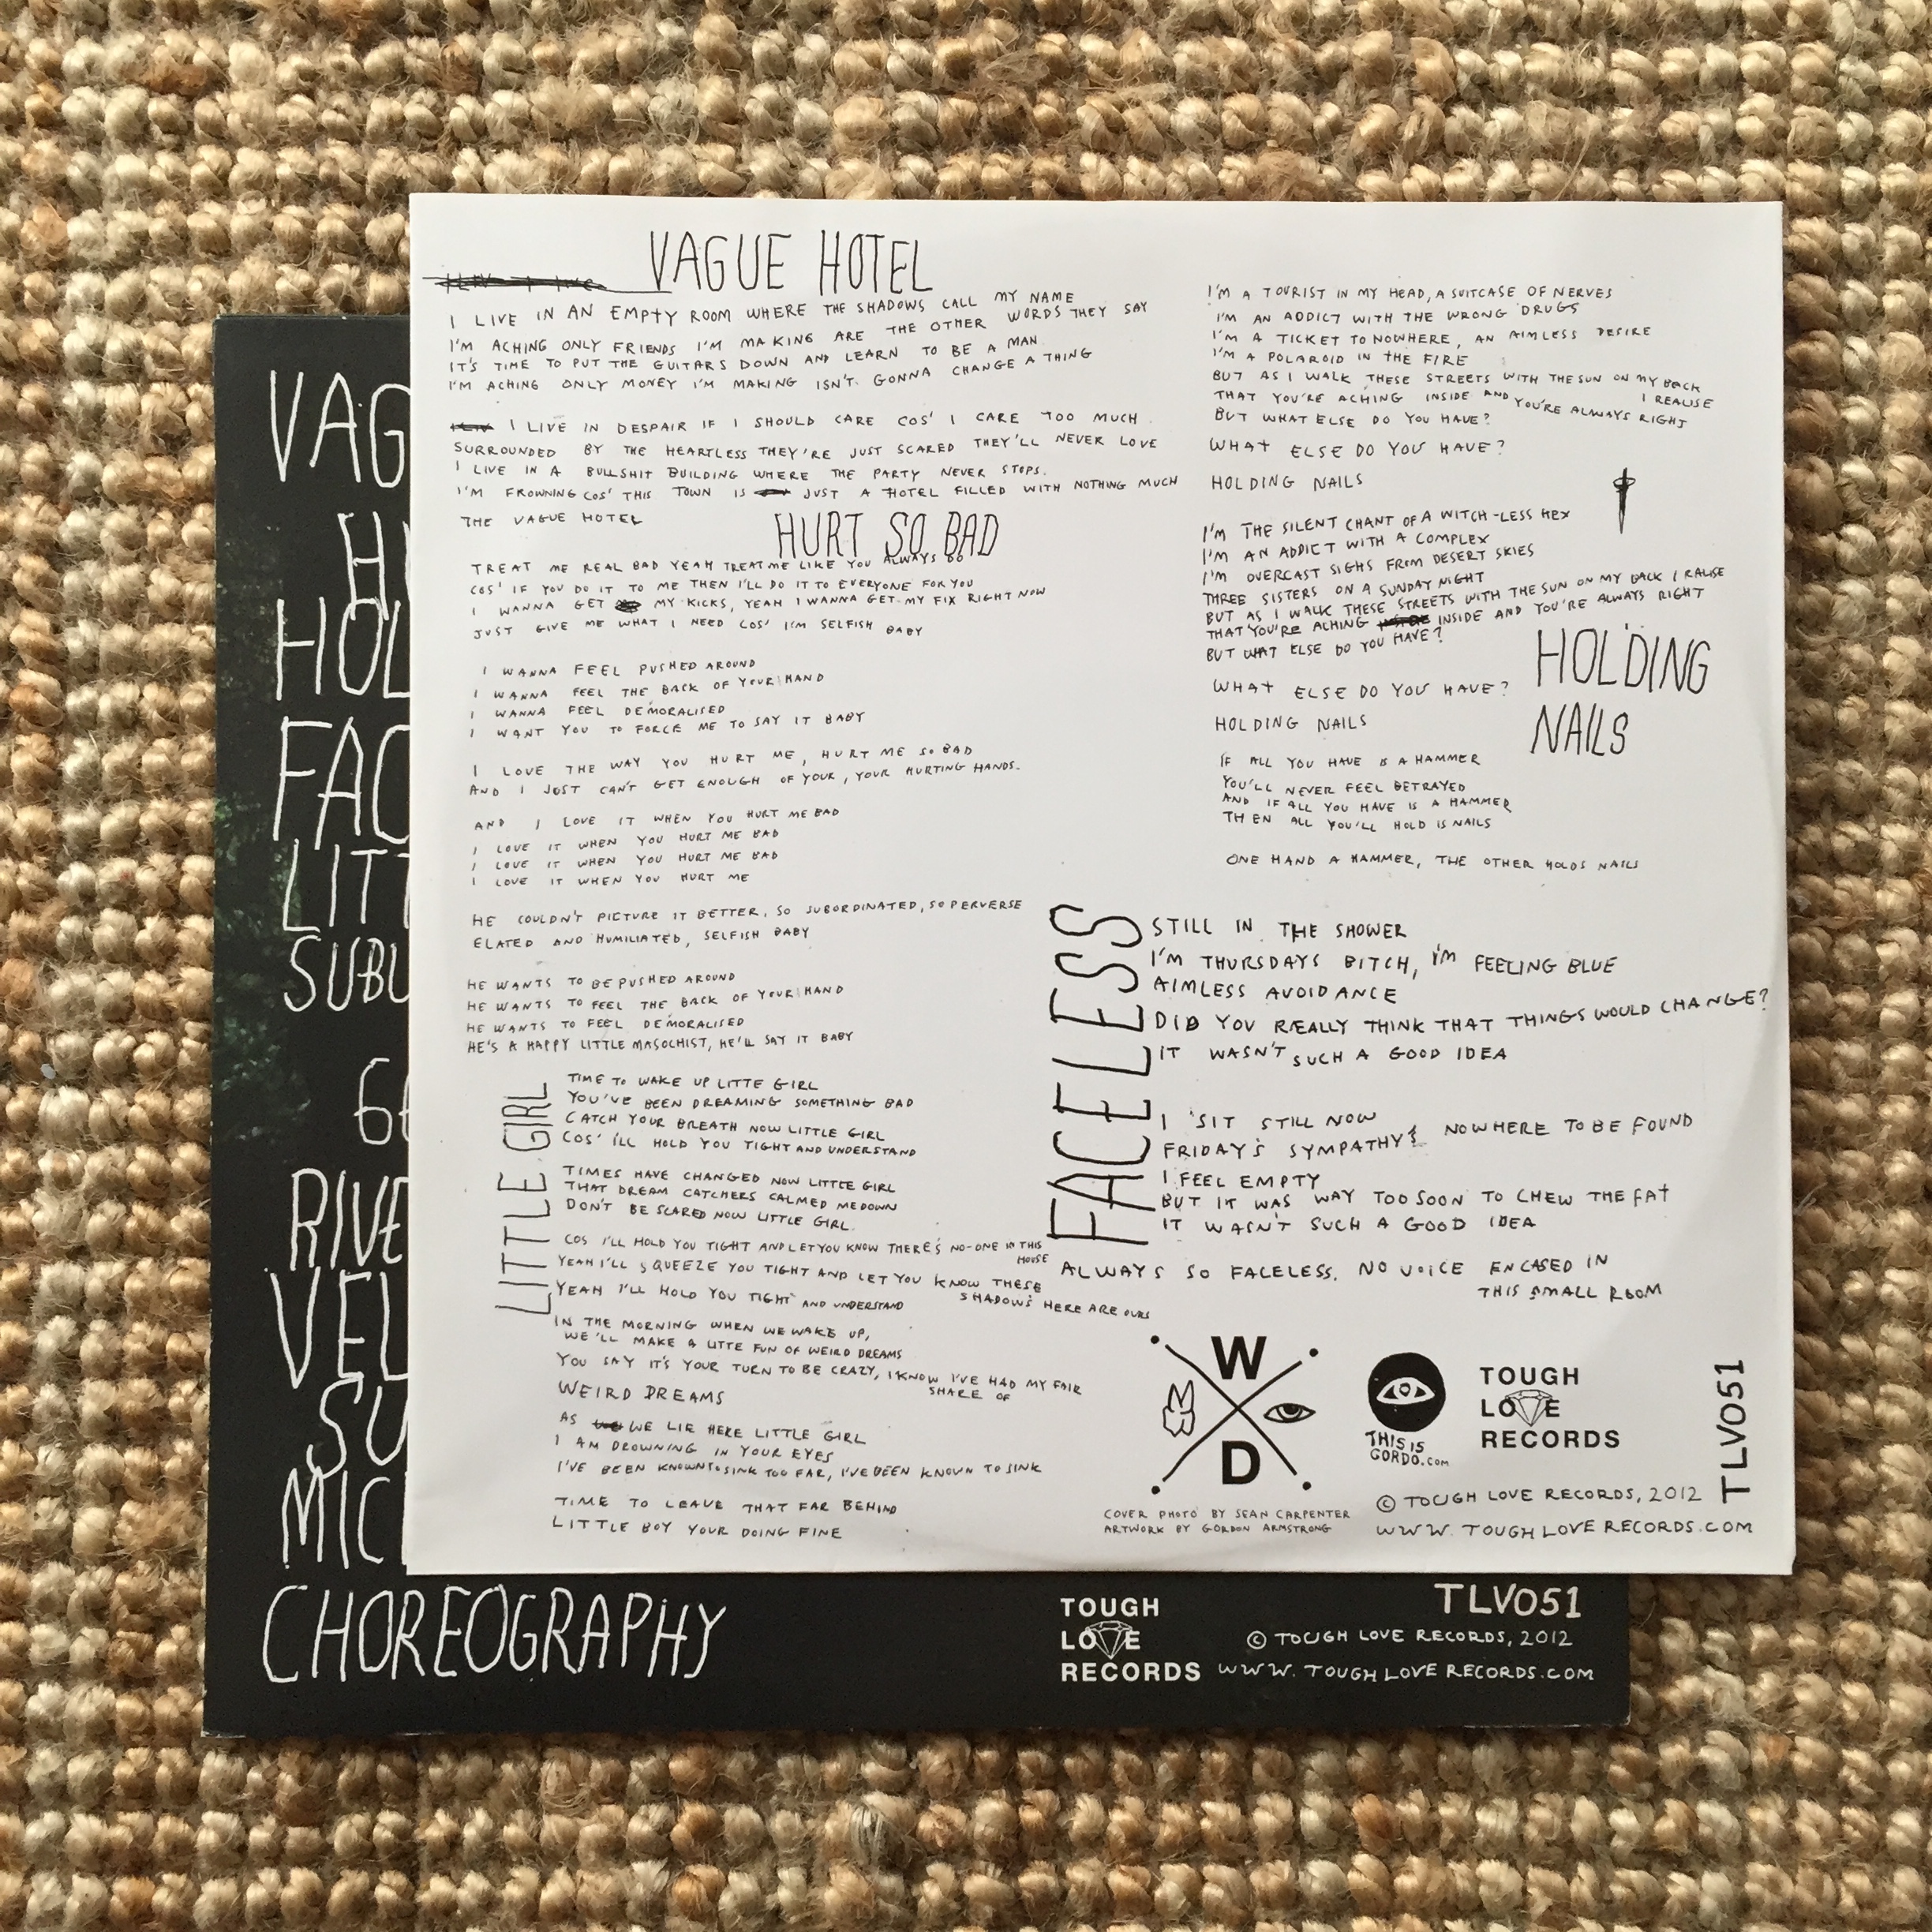 VAGUE HOTEL
I LIVE IN AN EMPTY ROOM WHERE THE SHADOWS CALL MY NAME
I'M ACHING ONLY FRIENDS I'M MAKING ARE THE OTHER WORDS THEY SAY
IT'S TIME TO PUT THE GUITARS DOWN AND LEARN TO BE A MAN
I'M ACHING ONLY MONEY I'M MAKING ISN'T GONNA CHANGE A THING
I LIVE IN DESPAIR IF I SHOULD CARE COS' I CARE TOO MUCH
SURROUNDED BY THE HEARTLESS THEY'RE JUST SCARED THEY'LL NEVER LOVE
I LIVE IN A BULLSHIT BUILDING WHERE THE PARTY NEVER STOPS.
I'M FROWNING COS' THIS TOWN IS JUST A HOTEL FILLED WITH NOTHING MUCH
THE VAGUE HOTEL
HURT SO BAD
TREAT ME REAL BAD YEAH TREAT ME LIKE YOU ALWAYS DO
COS' IF YOU DO IT TO ME THEN I'LL DO IT TO EVERYONE FOR YOU
I WANNA GET MY KICKS, YEAH I WANNA GET MY FIX RIGHT NOW
JUST GIVE ME WHAT I NEED COS' I'M SELFISH BABY
I WANNA FEEL PUSHED AROUND
I WANNA FEEL THE BACK OF YOUR HAND
I WANNA FEEL DEMORALISED
I WANT YOU TO FORCE ME TO SAY IT BABY
I LOVE THE WAY YOU HURT ME, HURT ME SO BAD
AND I JUST CAN'T GET ENOUGH OF YOUR, YOUR HURTING HANDS.
AND I LOVE IT WHEN YOU HURT ME BAD
I LOVE IT WHEN YOU HURT ME BAD
I LOVE IT WHEN YOU HURT ME BAD
I LOVE IT WHEN YOU HURT ME
HE COULDN'T PICTURE IT BETTER, SO SUBORDINATED, SO PERVERSE
ELATED AND HUMILIATED, SELFISH BABY
HE WANTS TO BE PUSHED AROUND
HE WANTS TO FEEL THE BACK OF YOUR HAND
HE WANTS TO FEEL DEMORALISED
HE'S A HAPPY LITTLE MASOCHIST, HE'LL SAY IT BABY
LITTLE GIRL
TIME TO WAKE UP LITTE GIRL
YOU'VE BEEN DREAMING SOMETHING BAD
CATCH YOUR BREATH NOW LITTLE GIRL
COS' I'LL HOLD YOU TIGHT AND UNDERSTAND
TIMES HAVE CHANGED NOW LITTLE GIRL
THAT DREAM CATCHERS CALMED ME DOWN
DON'T BE SCARED NOW LITTLE GIRL.
COS I'LL HOLD YOU TIGHT AND LET YOU KNOW THERE'S NO-ONE IN THIS
HOUSE
YEAH I'LL SQUEEZE YOU TIGHT AND LET YOU KNOW THESE
SHADOWS HERE ARE OURS
YEAH I'LL HOLD YOU TIGHT AND UNDERSTAND
IN THE MORNING WHEN WE WAKE UP,
WE'LL MAKE A LITTE FUN OF WEIRD DREAMS
YOU SAY IT'S YOUR TURN TO BE CRAZY, I KNOW I'VE HAD MY FAIR
SHARE OF
WEIRD DREAMS
AS WE LIE HERE LITTLE GIRL
I AM DROWNING IN YOUR EYES
I'VE BEEN KNOWN TO SINK TOO FAR, I'VE BEEN KNOWN TO SINK
TIME TO LEAVE THAT FAR BEHIND
LITTLE BOY YOUR DOING FINE
I'M A TOURIST IN MY HEAD, A SUITCASE OF NERVES
I'M AN ADDICT WITH THE WRONG DRUGS
I'M A TICKET TO NOWHERE, AN AIMLESS DESIRE
I'M A POLAROID IN THE FIRE
BUT AS I WALK THESE STREETS WITH THE SUN ON MY BACK
I REALISE
THAT YOU'RE ACHING INSIDE AND YOU'RE ALWAYS RIGHT
BUT WHAT ELSE DO YOU HAVE?
WHAT ELSE DO YOU HAVE?
HOLDING NAILS
I'M THE SILENT CHANT OF A WITCH-LESS HEX
I'M AN ADDICT WITH A COMPLEX
I'M OVERCAST SIGHS FROM DESERT SKIES
THREE SISTERS ON A SUNDAY NIGHT
BUT AS I WALK THESE STREETS WITH THE SUN ON MY BACK I RALISE
THAT YOU'RE ACHING INSIDE AND YOU'RE ALWAYS RIGHT
BUT WHAT ELSE DO YOU HAVE?
WHAT ELSE DO YOU HAVE?
HOLDING NAILS
HOLDING
NAILS
IF ALL YOU HAVE IS A HAMMER
YOU'LL NEVER FEEL BETRAYED
AND IF ALL YOU HAVE IS A HAMMER
THEN ALL YOU'LL HOLD IS NAILS
ONE HAND A HAMMER, THE OTHER HOLDS NAILS
FACELESS
STILL IN THE SHOWER
I'M THURSDAYS BITCH, I'M FEELING BLUE
AIMLESS AVOIDANCE
DID YOU REALLY THINK THAT THINGS WOULD CHANGE?
IT WASN'T SUCH A GOOD IDEA
I SIT STILL NOW
FRIDAY'S SYMPATHY'S NOWHERE TO BE FOUND
I FEEL EMPTY
BUT IT WAS WAY TOO SOON TO CHEW THE FAT
IT WASN'T SUCH A GOOD IDEA
ALWAYS SO FACELESS. NO VOICE ENCASED IN
THIS SMALL ROOM
W
D
THIS IS
GORDO.COM
TOUGH
LOVE
RECORDS
TLV051
COVER PHOTO BY SEAN CARPENTER
ARTWORK BY GORDON ARMSTRONG
© TOUGH LOVE RECORDS, 2012
WWW.TOUGHLOVERECORDS.COM
VAG
HOL
FAC
LITT
SUBU
RIVE
VEL
SU
MIC
CHOREOGRAPHY
TOUGH
LOVE
RECORDS
TLV051
© TOUGH LOVE RECORDS, 2012
WWW.TOUGHLOVERECORDS.COM